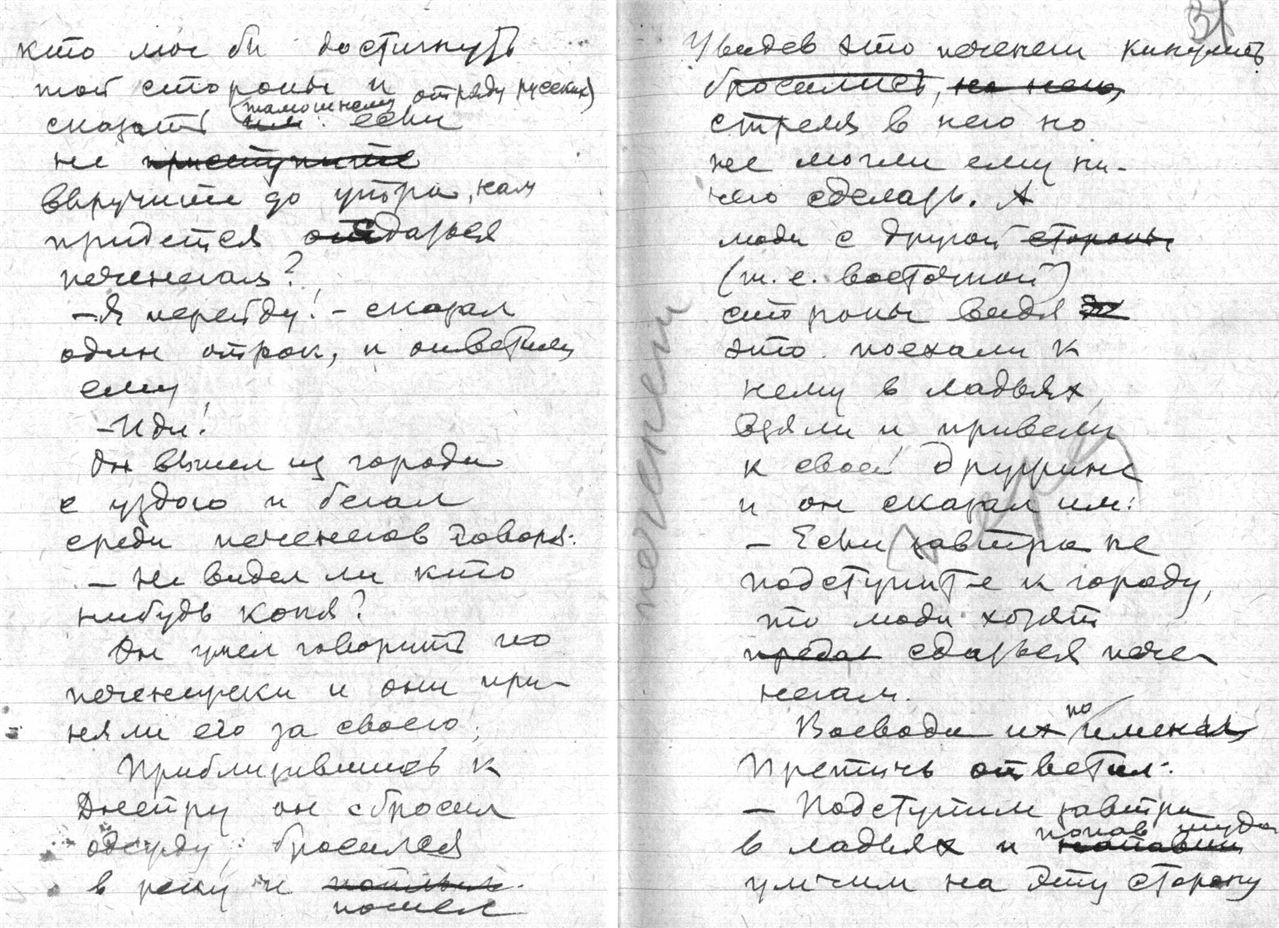 кто мог бы достигнуть
той стороны и
сказать им тамошнему отряду русских) если
не приступите
выручите до утра, нам
придется отсдаться
печенегам?
– Я перейду! – сказал
один отрок, и ответили
ему
– Иди!
Он вышел из города
с уздою и бегал
среди печенегов говоря:
– не видел ли кто
нибудь коня?
Он умел говорить по
печенежски и они при-
няли его за своего,
Приблизившись к
Днепру он сбросил
одежду, бросился
в реку и поплыл.
пошел
31
Увидев это печенеги кинулись
бросились, на него,
стреляя в него но
не могли ему ни-
чего сделать. А
люди с другой стороны
(т. е. восточной)
стороны видя
это поехали к
нему в ладьях,
взяли и привели
к своей дружине
и он сказал им:
– Если завтра не
подступите к городу,
то люди хотят
предат сдаться пече-
негам.
Воевода их по имени
Претичь ответил:
– Подступим завтра
в ладьях и попав туда
умчим на эту сторону
печенеги